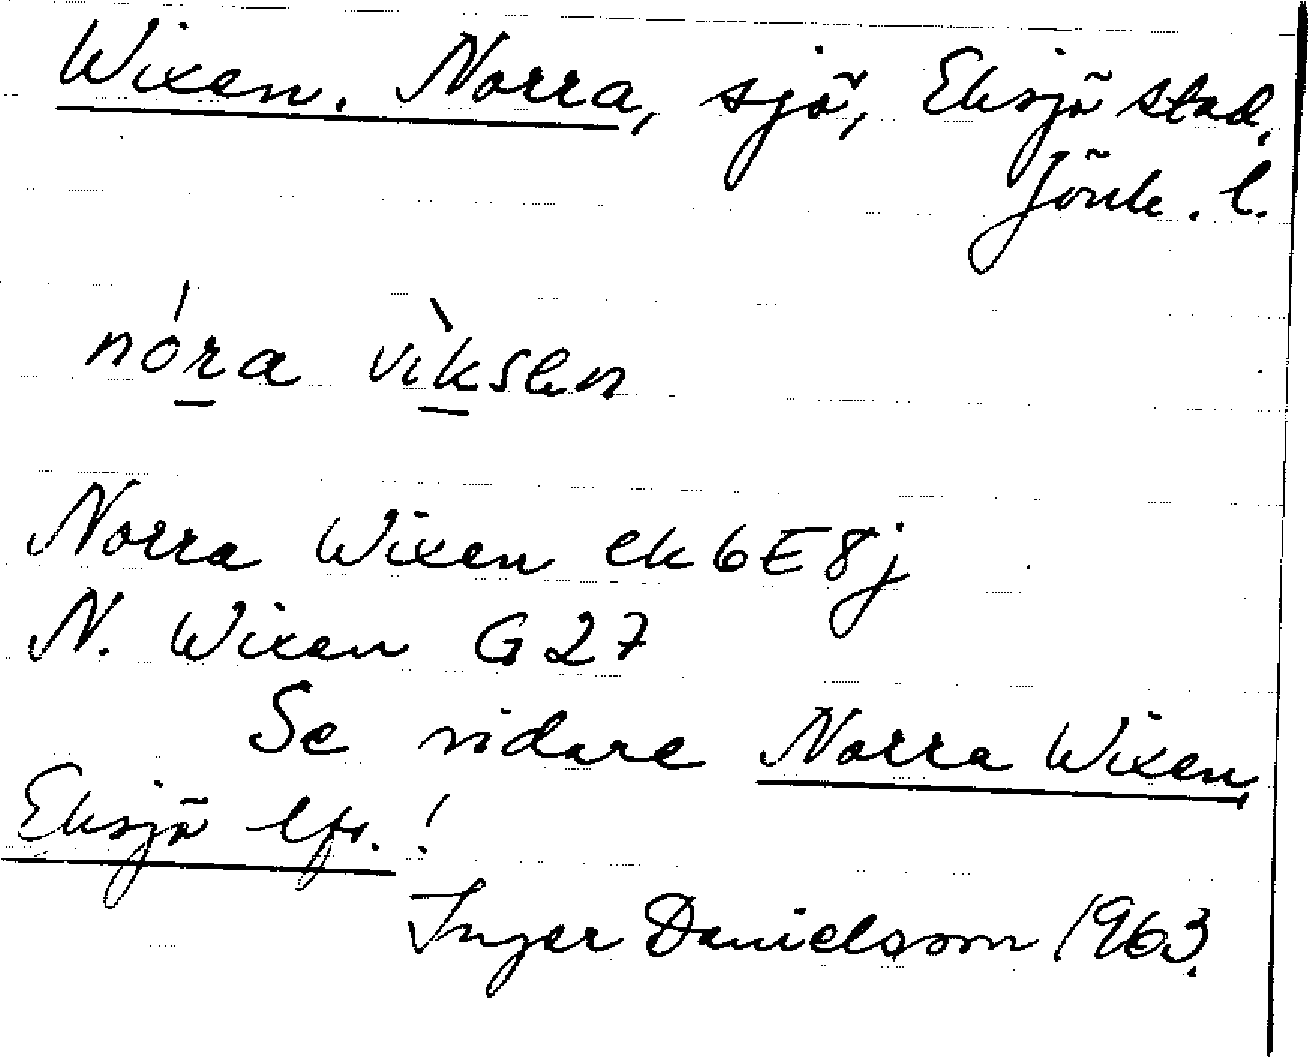 Wixen. Norra, sjö, Eksjö stad,
Jönk. l.
nóra vìksen
Norra Wixen ek 6E8j
N. Wixen G 27
Se vidare Norra Wixen,
Eksjö lfs.!
Inger Danielsson 1963.